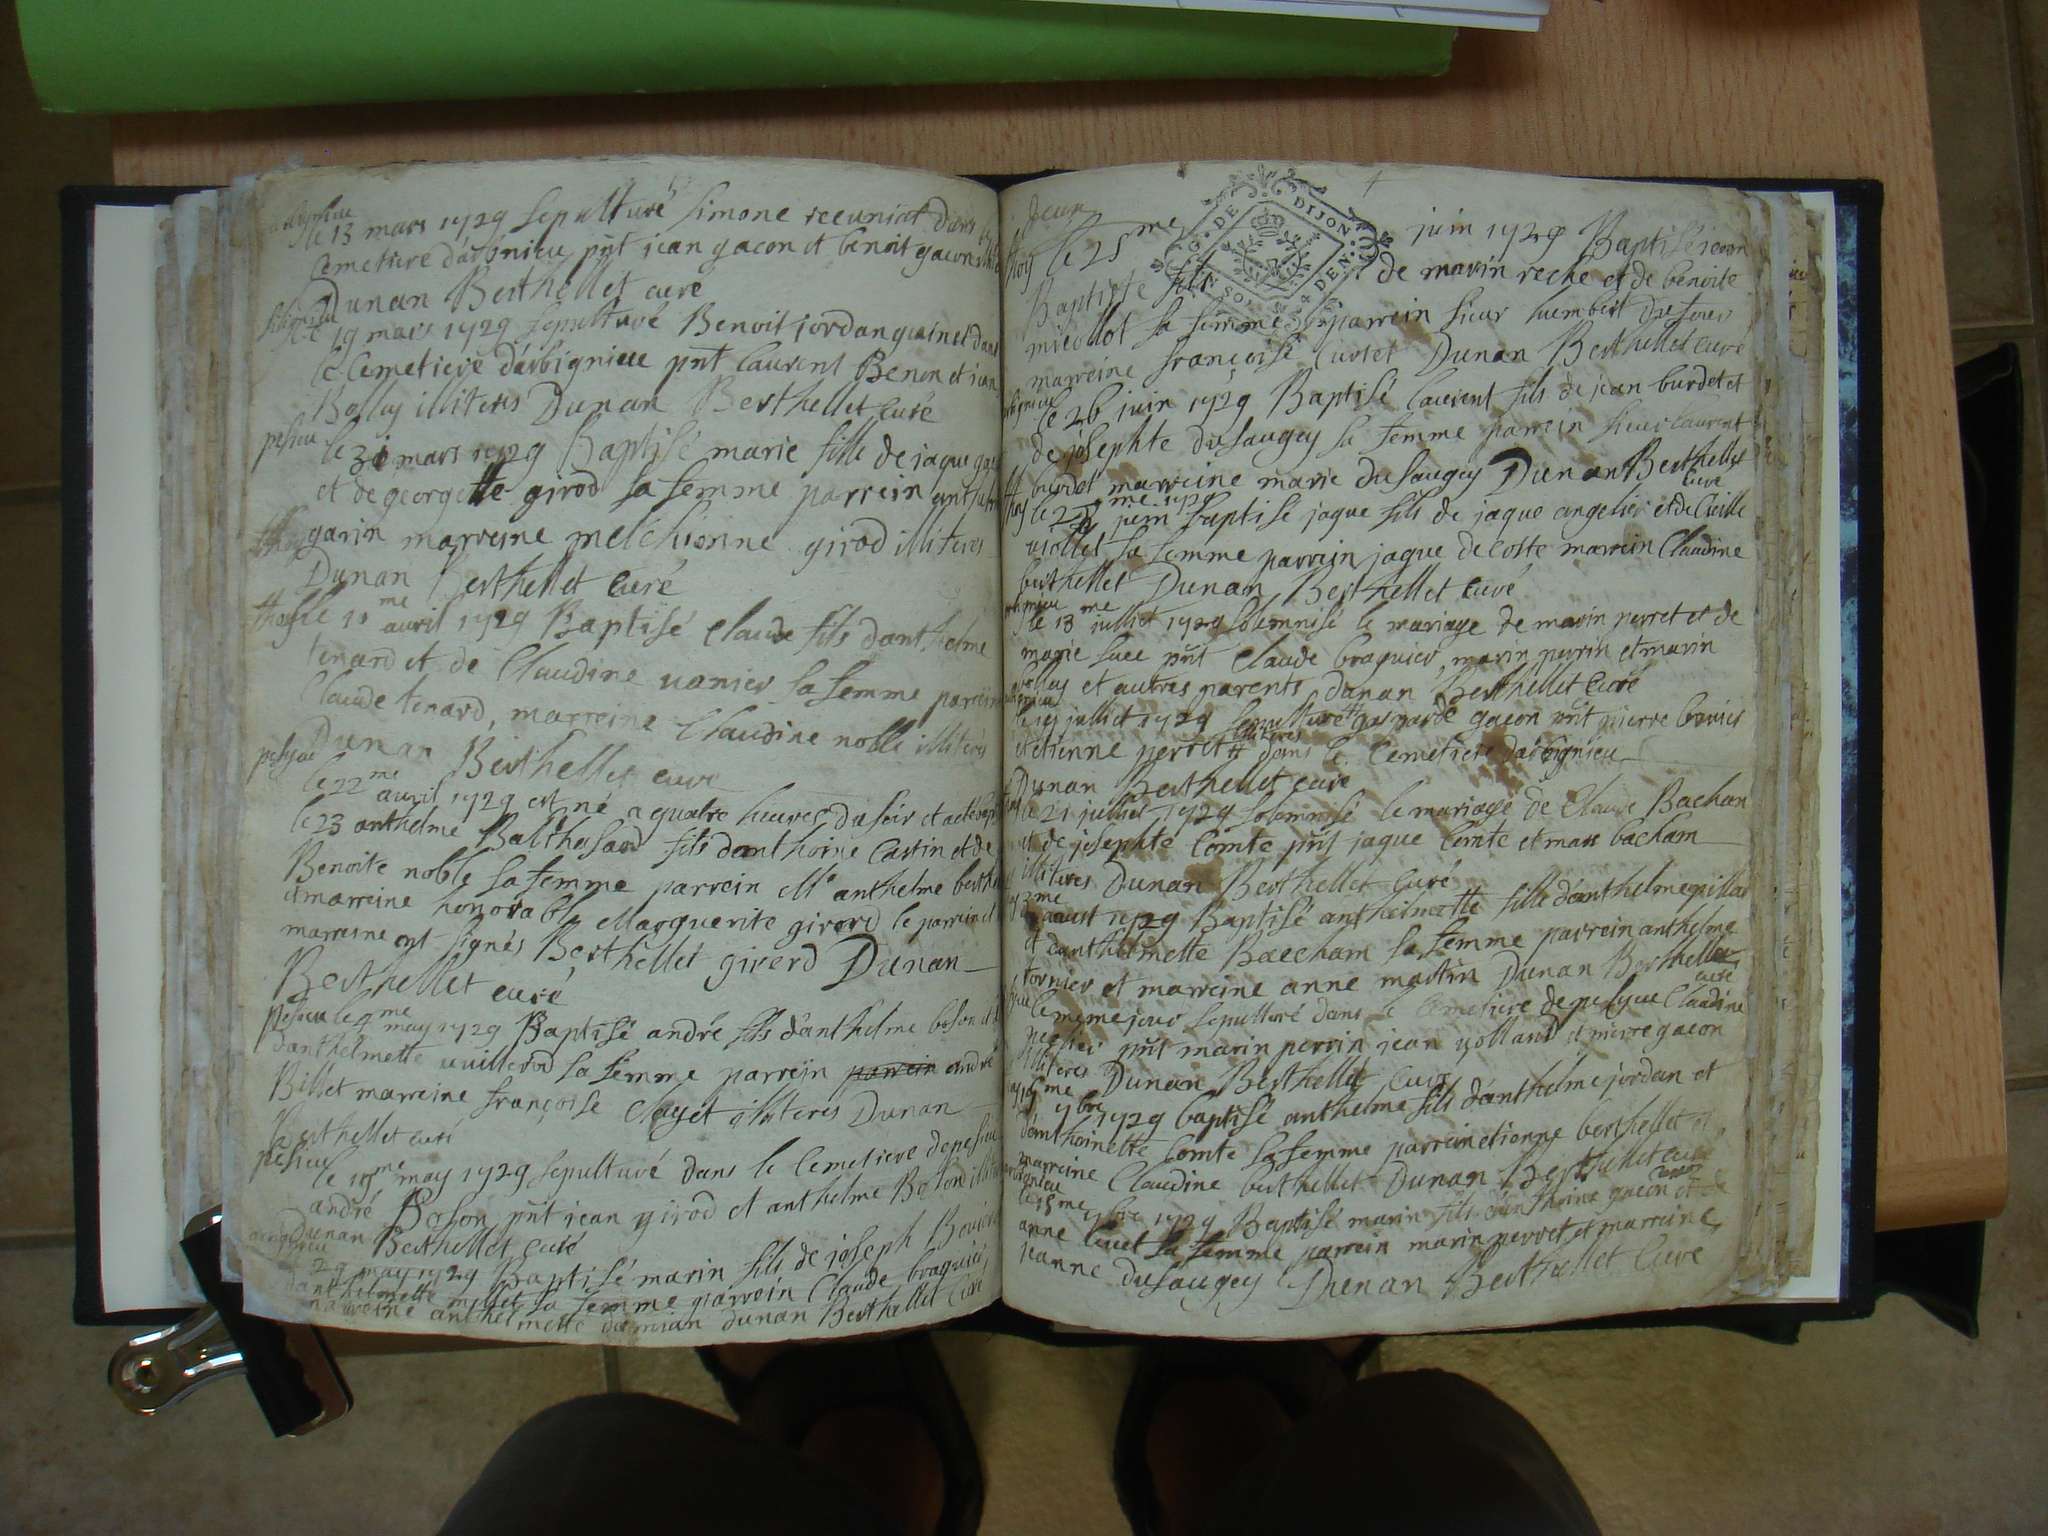 le 13 mars 1729 sepulturé Simone reeuniat dans le
Cemetiere d'arbignieu pñt jean gacon et benoit gacon
Dunan Berthellet curé
le 19 mars 1729 sepulturé Benoit jordan guainet dans
le Cemetiere d'arbignieu pñt laurent Benon et jean
Bolley illiteres Dunan Berthellet curé
pesieu
le 31 mars 1729 Baptisé marie fille de jaque
et de georgette girod sa femme parrein
garin marreine melchionne girod illiteres
Dunan Berthellet curé
thoy le 10me avril 1729 Baptisé Claude fils danthelme
tenard et de Claudine vanier sa femme parrein
Claude tenard, marreine Claudine noble illiteres
Dunan Berthellet curé
le 22me avril 1729 est né a quatre heures du soir et
le 23 anthelme Balthesard fils danthoine Castin et de
Benoite noble sa femme parrein Mr anthelme
et marreine honorable Marguerite girerd le parrein et
marreine ont signés Berthellet girerd Dunan
Berthellet curé
pesieu le 9me may 1729 Baptisé andré fils d'anthelme boson et
danthelmette vuillerod sa femme parrein parrein andré
Billet marreine françoise Clayet illiteres Dunan
Berthellet curé
pesieu
le 10me may 1729 sepulturé dans le Cemetiere de pesieu
andré Boson pñt jean girod et anthelme Boson
Dunan Berthellet curé
29 may 1729 Baptisé marin fils de joseph
danthelmette millet sa femme parrein Claude braquier,
marreine anthelmette damian dunan Berthellet Curé
G. DE DIJON
thoy le 25me juin 1729 Baptisé jean
Baptiste fils de marin reche et de benoite
micollot sa femme parrein sieur humbert dufour
marreine françoise Curtet Dunan Berthellet Curé
le 26 juin 1729 Baptisé laurent fils de jean burdet et
de josephte dusaugey sa femme parrein sieur laurent
burdet marreine marie dusaugey Dunan Berthellet
curé
me 1729
le juin baptisé jaque fils de jaque angelier et de
violllet sa femme parrein jaque decoste marrein Claudine
berthellet Dunan Berthellet Curé
le 13me juillet 1729 solemnisé le mariage de marin perret et de
marie pñt Claude braquier, marin perrin et marin
et autres parents dunan Berthellet Curé
juillet 1729 sepulturé gaspande gacon pñt pierre bovier
illiteres
et etienne perret dans le Cemetiere darbignieu
Dunan Berthellet curé
le 21 juillet 1729 solemnisé le mariage de Claude Bachan
et de josephte Comte pñt jaque Comte et marc bacham
illiteres Dunan Berthellet Curé
me aoust 1729 Baptisé anthelmette fille d'anthelme pillas
et danthelmette Baccham sa femme parrein anthelme
tornier et marreine anne martin Dunan Berthellet
curé
le meme jour sepulturé dans le Cemetiere de Claudine
pñt marin perrin jean yolland et pierre gacon
illiteres Dunan Berthellet Curé
me 7bre 1729 baptisé anthelme fils d'anthelme jordan et
danthoinette Comte sa femme parrein etienne berthellet et
marreine Claudine berthellet Dunan Berthellet curé
7bre 1729 Baptisé marin fils d'anthoine gacon et de
anne sa femme parrein marin perret et marreine
jeanne dusaugey Dunan Berthellet Curé